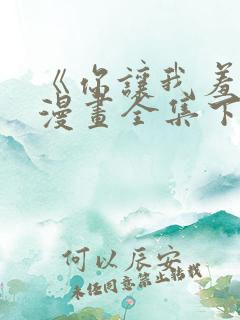 《你讓我羞
漫畫全集下
何以辰安
未经同意禁止转载